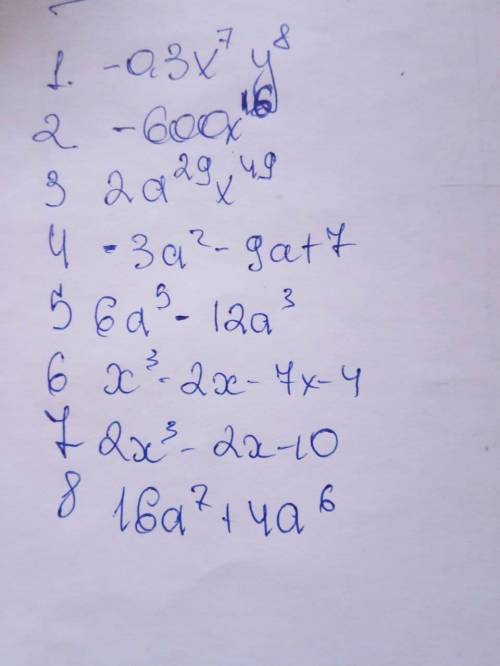 1. -0.3x⁷ y⁸
2. -600x¹⁶
3 2a²⁹x⁴⁹
4 -3a² - 9a+7
5 6a⁵ - 12a³
6 x³ - 2x - 7x - 4
7 2x³ - 2x - 10
8 16a⁷ + 4a⁶